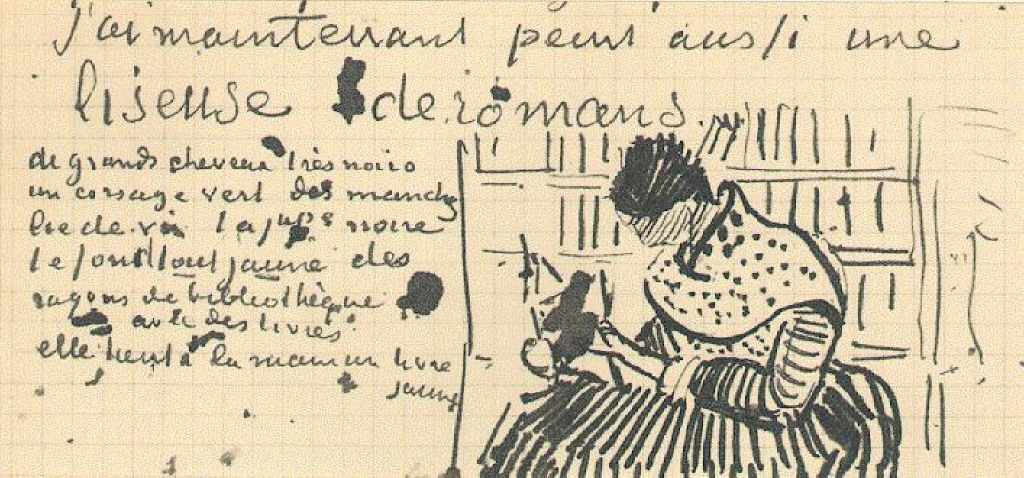 j'ai maintenant peint aussi une
liseuse de romans.
de grands cheveux très noirs
un corsage vert des manches
lie de vin la jupe noire
le fond tout jaune des
rayons de bibliothèque
avec des livres
elle tient à la main un livre
jaune